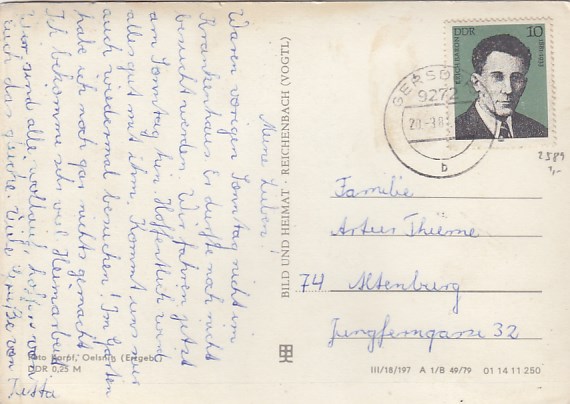 Meine Lieben,
Waren vorigen Sonntag nicht im
Krankenhaus. Er durfte noch nicht
besucht werden. Wir fahren jetzt
am Sonntag hin. Hoffentlich wird
alles gut mit ihm. Kommt uns nur
auch wiedermal besuchen! Im Garten
habe ich noch gar nichts gemacht
Ich bekomme sehr viel Heimarbeit
Wir sind alle wohlauf, hoffen von
Euch das gleiche. Viele Grüße von Jutta
BILD UND HEIMAT · REICHENBACH (VOGTL)
Foto Karpf, Oelsnitz (Erzgeb.)
DDR 0,25 M
DDR 10
ERICH BARON
1881-1933
9272
b
2389
1,-
Familie
Artur Thieme
74 Altenburg
Jungferngasse 32
III/18/197 A 1/B 49/79 01 14 11 250